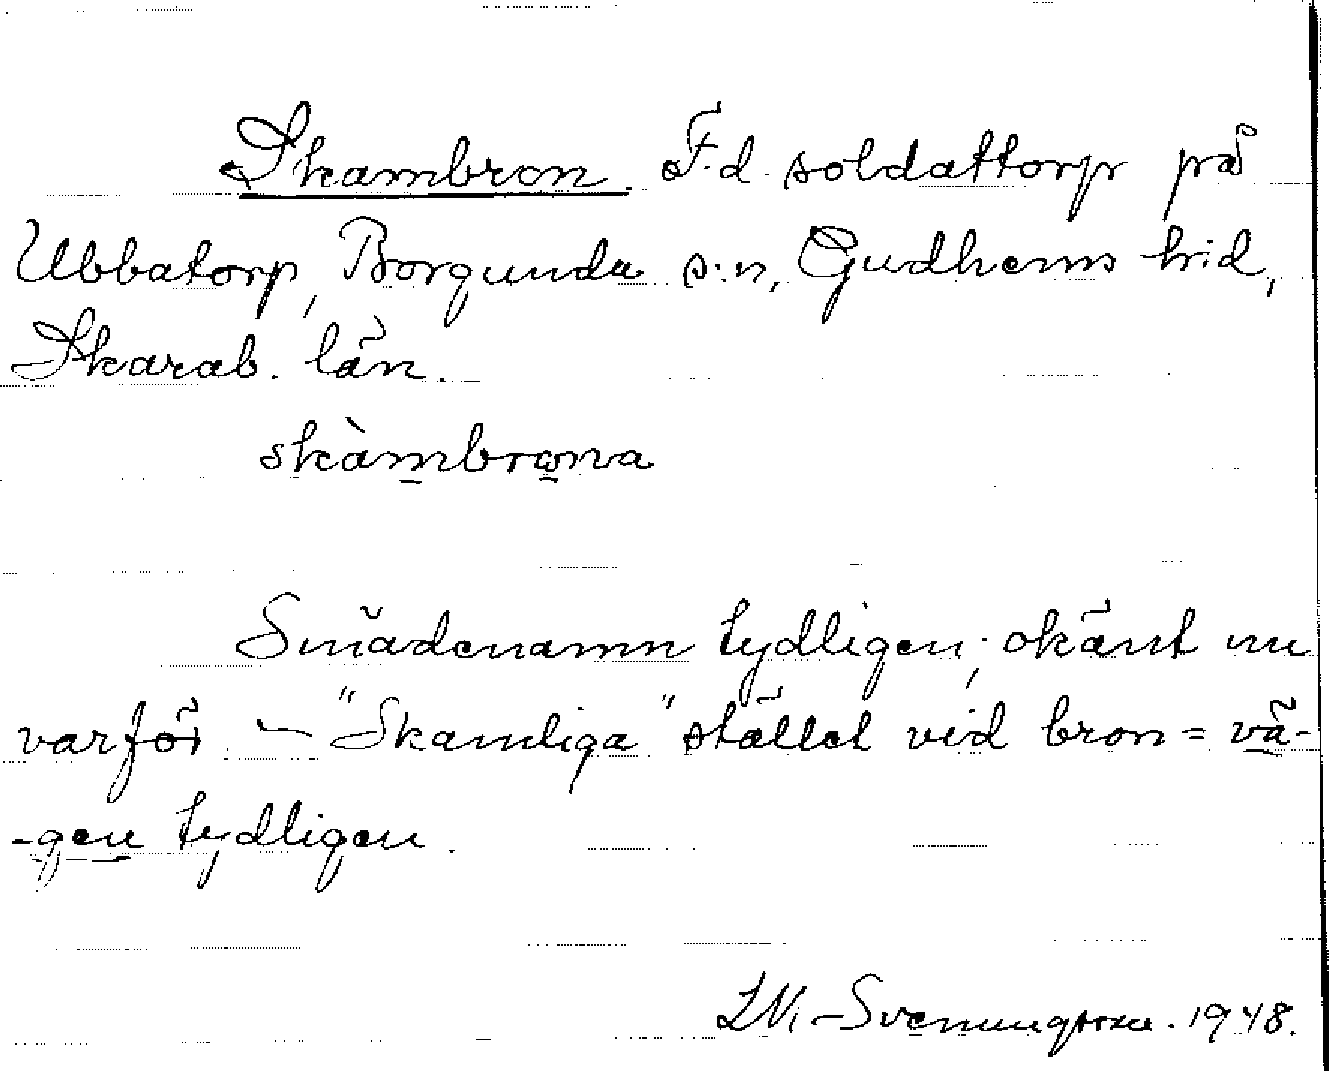 Skambron. F.d. soldattorp på
Ubbatorp, Borgunda s:n, Gudhems hrd,
Skarab. län.
skàmbrona
Smädenamn tydligen; okänt nu
varför. — "Skamliga" stället vid bron = vä-
-gen tydligen.
Svenungsson. 1948.